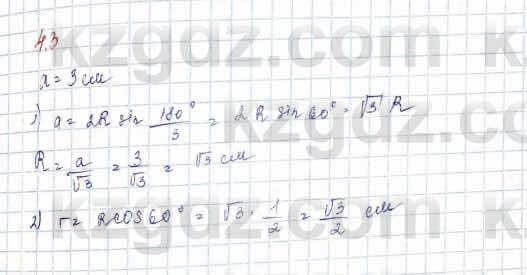 4.3
x = 3 см
1) a = 2R sin 180°/3 = 2R sin 60° = √3 R
R = a/√3 = 3/√3 = √3 см
2) r = R cos 60° = √3 · 1/2 = √3/2 см
kzgdz.com
kzgdz.com
kzgdz.com
kzgdz.com